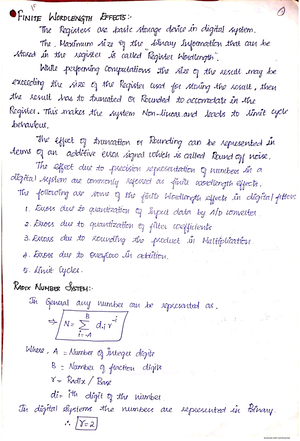 FINITE WORDLENGTH EFFECTS:-
The Registers are basic storage device in digital system.
The Maximum size of the Binary Information that can be
stored in the register is called "Register Wordlength".
While performing computations the size of the result may be
exceeding the size of the Register used for storing the result, then
the result has to truncated or Rounded to accomodate in the
Register. This makes the system Non-linear and leads to limit cycle
behaviour.
The effect of truncation or Rounding can be represented in
terms of an additive error signal which is called Round off noise.
The effect due to precision representation of numbers in a
digital system are commonly referred as finite wordlength effects.
The following are some of the finite Wordlength effects in digital filters.
1. Errors due to quantization of Input data by A/D converter
2. Errors due to quantization of filter coefficients
3. Errors due to rounding the product in Multiplication
4. Errors due to overflow in addition.
5. Limit Cycles.
RADIX NUMBER SYSTEM:-
In General any number can be represented as.
⇒ N = Σ_{i=-A}^{B} d_i r^{-i}
Where, A = Number of Integer digits
B = Number of fraction digits
r = Radix / Base
di = ith digit of the number
In digital systems the numbers are represented in Binary.
∴ r=2